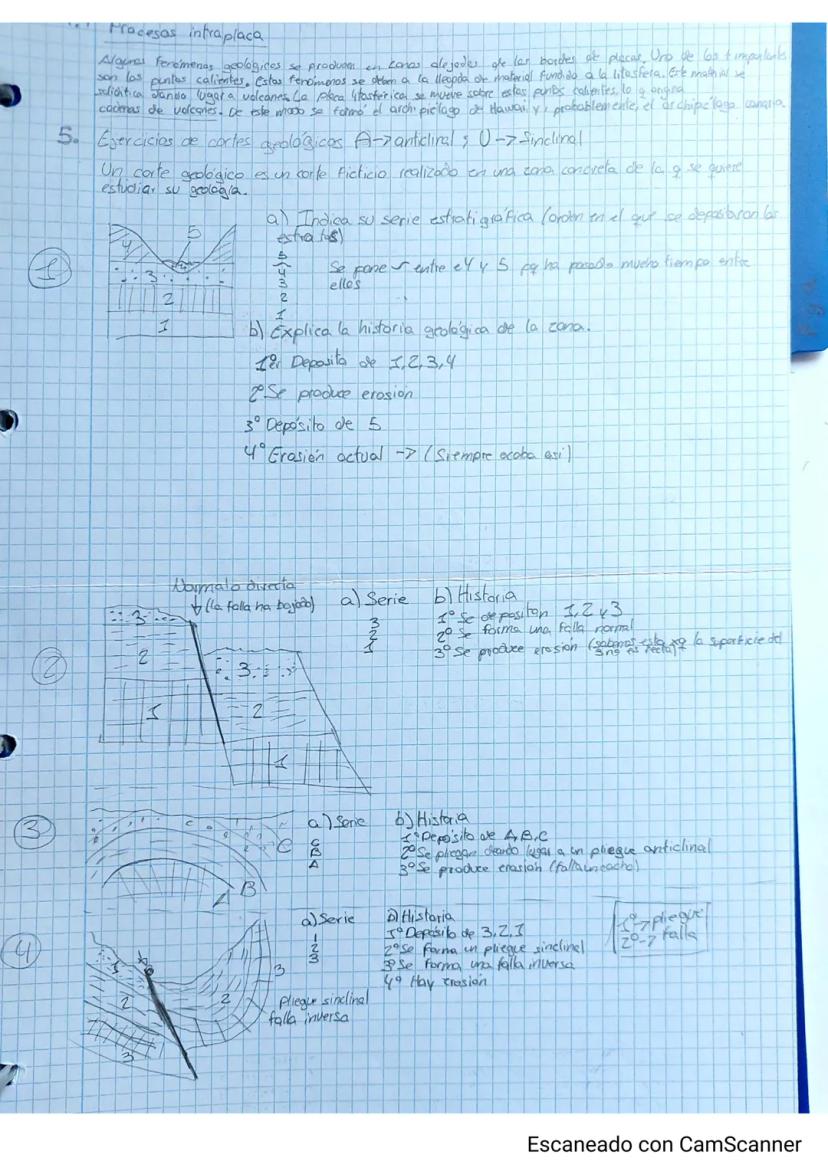 Procesos intraplaca
Algunos fenómenos geológicos se producen en zonas alejadas de los bordes de placas. Uno de los + importantes
son los puntos calientes. Estos fenómenos se deben a la llegada de material fundido a la litosfera. Este material se
solidifica dando lugar a volcanes. La placa litosférica se mueve sobre estos puntos calientes, lo q origina
cadenas de volcanes. De este modo se formó el archipiélago de Hawai y, probablemente, el archipiélago canario.
5. Ejercicios de cortes geológicos A-> anticlinal ; U-> Sinclinal
Un corte geológico es un corte ficticio realizado en una zona concreta de la q se quiere
estudiar su geología.
1
4
5
3
2
1
a) Indica su serie estratigráfica (orden en el que se depositaron los
estratos)
5
4
3
2
1
Se pone ~ entre el 4 y 5 pq ha pasado mucho tiempo entre
ellos
b) Explica la historia geológica de la zona.
1º Deposito de 1,2,3,4
2º Se produce erosión
3º Depósito de 5
4º Erosión actual -> (Siempre acaba así)
2
Normal o directa
(la falla ha bajado)
3
2
1
3
2
1
a) Serie
3
2
1
b) Historia
1º Se depositan 1,2 y 3
2º Se forma una falla normal
3º Se produce erosión (sabemos esto xq la superficie del
3 no es recta)
3
C
B
A
a) Serie
C
B
A
b) Historia
1º Depósito de A,B,C
2º Se pliegan dando lugar a un pliegue anticlinal
3º Se produce erosión (falta un cacho)
4
1
2
3
2
3
Pliegue sinclinal
falla inversa
a) Serie
1
2
3
b) Historia
1º Depósito de 3,2,1
2º Se forma un pliegue sinclinal
3º Se forma una falla inversa
4º Hay erosión
1º-> pliegue
2º-> falla
Escaneado con CamScanner